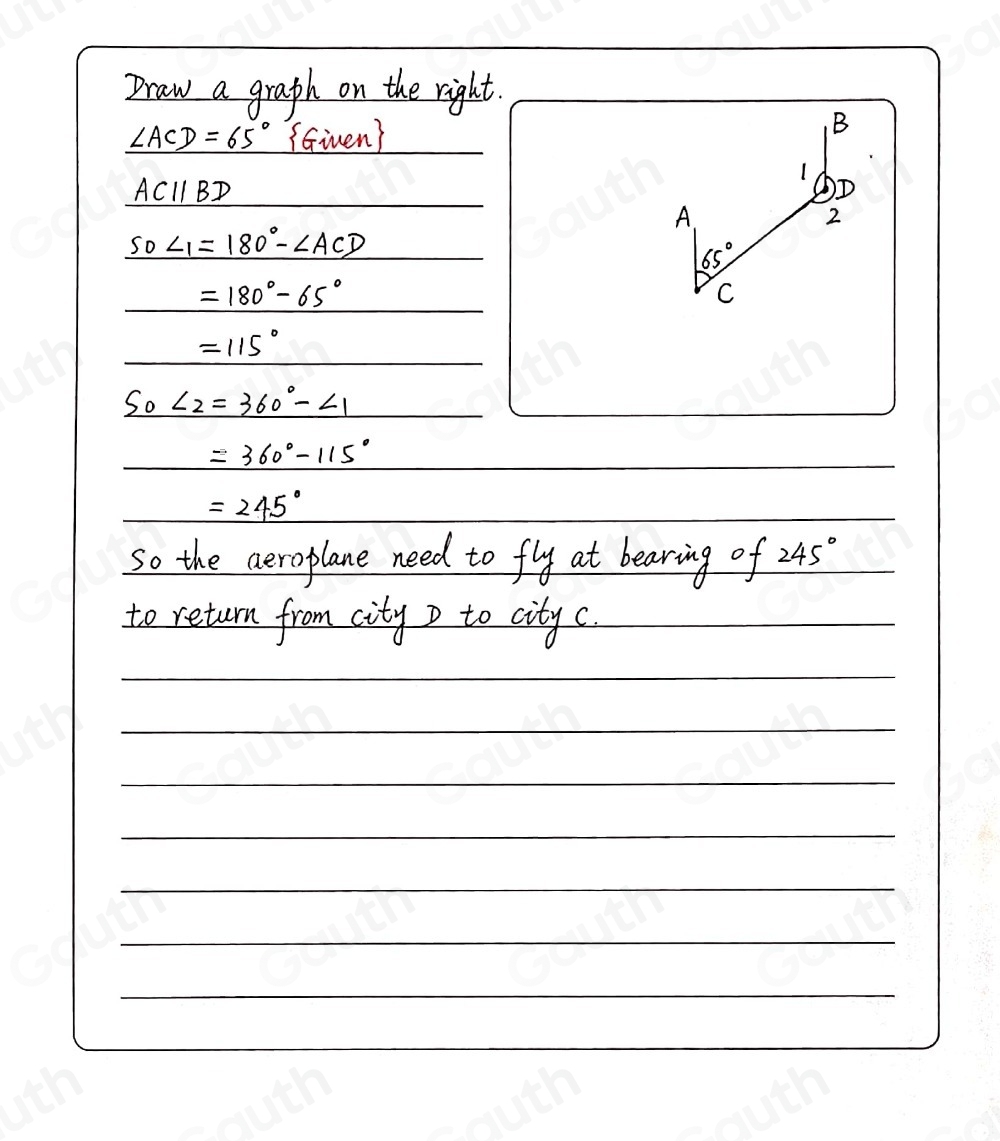 Draw a graph on the right.
∠ACD = 65° {Given}
AC∥BD
so ∠1 = 180° - ∠ACD
= 180° - 65°
= 115°
So ∠2 = 360° - ∠1
= 360° - 115°
= 245°
So the aeroplane need to fly at bearing of 245°
to return from city D to city C.
B
1
D
2
A
65°
C
Gauth